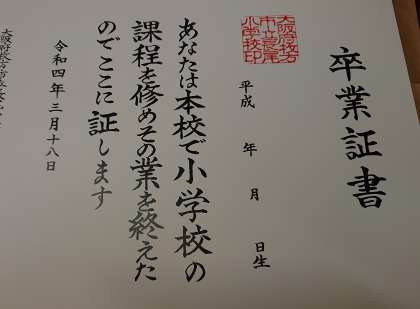 卒業証書
大阪府枚方
市立長尾
小学校印
平成　年　月　日生
あなたは本校で小学校の
課程を修めその業を終えた
のでここに証します
令和四年三月十八日
大阪府枚方市立長